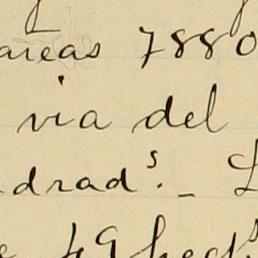 areas 7880
via del
drad^s._ L
49 hect^s.